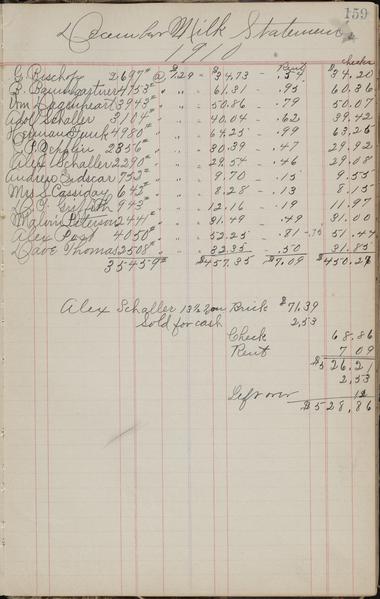 159
December Milk Statement
1910
Rent checks
G. Bischof 2697# @ $1.29 - $34.73 - .54 $34.20
B. Baumgartner 4753# " " - 61.31 - .95 60.36
Wm Hagenheart 3943# " " - 50.86 - .79 50.07
Adolf Schaller 3104# " " - 40.04 - .62 39.42
Herman Funk 4980# " " - 64.25 - .99 63.26
2356# " " - 30.39 - .47 29.92
Alex Schaller 2290# " " - 29.54 - .46 29.08
Andrew 752# " " - 9.70 - .15 9.55
Mrs S Cassiday 642# " " - 8.28 - .13 8.15
Griffith 943# " " - 12.16 - .19 11.97
Malvin Peterson 2441# " " 31.49 - .49 31.00
Alex Post 4050# " " 52.25 - .81 51.44
Dave Thomas 2508# " " 32.35 - .50 31.85
35459# $457.35 $7.09 $450.27
Alex Schaller 13½ on Brick $71.39
Sold for cash 2.53
Check 68.86
Rent 7.09
$526.21
2.53
Left over 12
$528.86